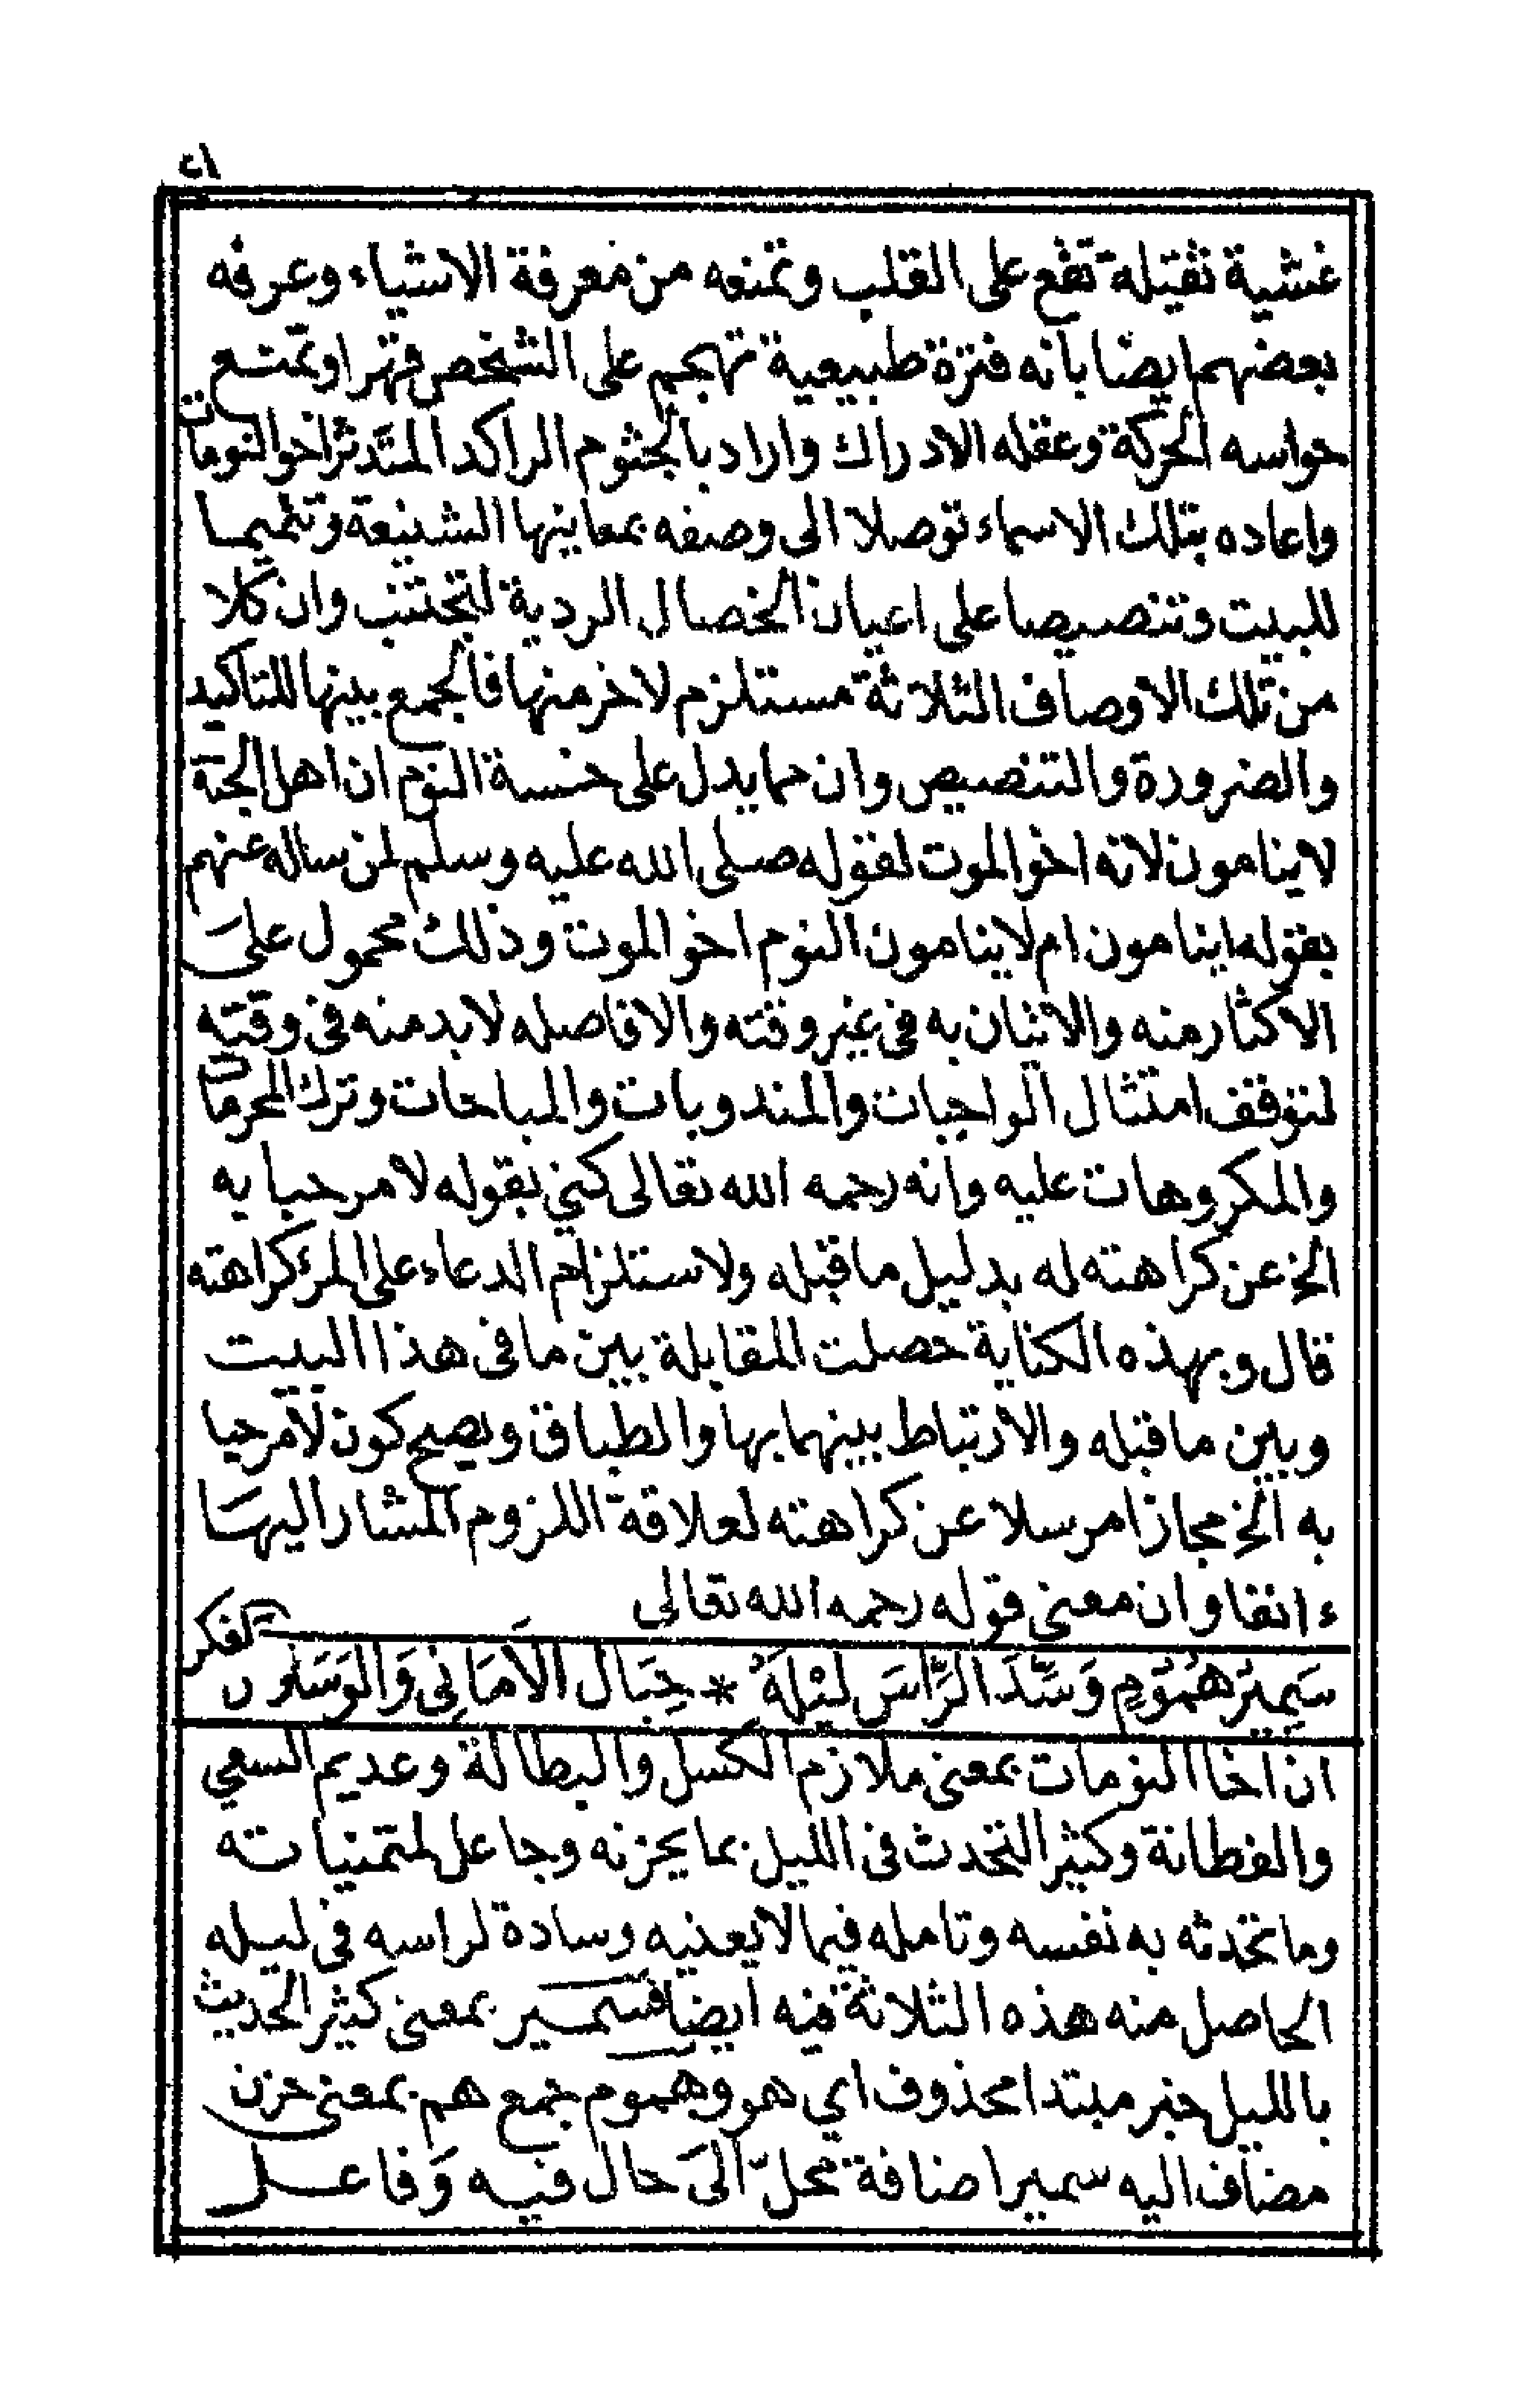 ٢١
غشية ثقيلة تقع على القلب وتمنعه من معرفة الاشياء وعرفه
بعضهم ايضا بانه فترة طبيعية تهجم على الشخص قهرا وتمنع
حواسه الحركة وعقله الادراك واراد بالجثوم الراكد المتدثر اخو النومات
واعاده بتلك الاسماء توصلا الى وصفه بمعاينها الشنيعة وتتميما
للبيت وتنصيصا على اعيان الخصال الردية لتجتنب وان كلا
من تلك الاوصاف الثلاثة مستلزم لاخر منها فالجمع بينها للتاكيد
والضرورة والتنصيص وان مما يدل على خسة النوم ان اهل الجنة
لاينامون لانه اخو الموت لقوله صلى الله عليه وسلم لمن ساله عنهم
بقوله اينامون ام لاينامون النوم اخو الموت وذلك محمول على
الاكثار منه والاتيان به في غير وقته والا فاصله لابد منه في وقته
لتوقف امتثال الواجبات والمندوبات والمباحات وترك المحرمات
والمكروهات عليه وانه رحمه الله تعالى كنى بقوله لامرحبا به
الخ عن كراهته له بدليل ماقبله ولاستلزام الدعاء على المرء كراهته
قال وبهذه الكناية حصلت المقابلة بين ما في هذا البيت
وبين ماقبله والارتباط بينهما بها والطباق ويصح كون لامرحبا
به الخ مجازا مرسلا عن كراهته لعلاقة اللزوم المشار اليها
ءانفا وان معنى قوله رحمه الله تعالى
سَمِيرُ هُمُومٍ وَسَّدَ الرَّاسَ لَيْلَهُ * حِبَال الاَمَانِى وَالوَسَاوِس والفكر
ان اخا النومات بمعنى ملازم الكسل والبطالة وعديم السعي
والفطانة وكثير التحدث فى الليل بما يحزنه وجاعل لمتمنياته
وما تحدثه به نفسه وتامله فيما لايعنيه وسادة لراسه فى ليله
الحاصل منه هذه الثلاثة فيه ايضا فسمير بمعنى كثير الحديث
بالليل خبر مبتدا محذوف اي هو وهموم جمع هم بمعنى حزن
مضاف اليه سمير اضافة محلّ الَى حال فيه وَفاعل